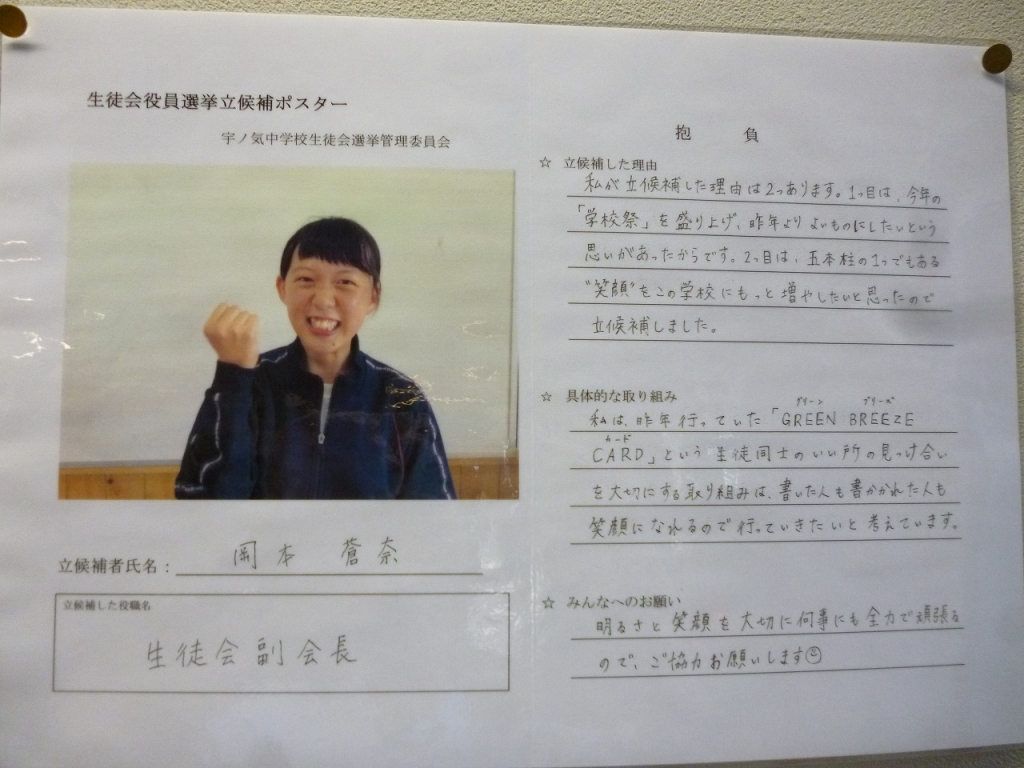 生徒会役員選挙立候補ポスター
宇ノ気中学校生徒会選挙管理委員会
立候補者氏名：岡本 蒼奈
立候補した役職名
生徒会副会長
抱 負
☆ 立候補した理由
私が立候補した理由は2つあります。1つ目は、今年の
「学校祭」を盛り上げ、昨年よりよいものにしたいという
思いがあったからです。2つ目は、五本柱の1つでもある
"笑顔"をこの学校にもっと増やしたいと思ったので
立候補しました。
☆ 具体的な取り組み
グリーン ブリーズ
私は、昨年行っていた「GREEN BREEZE
カード
CARD」という生徒同士のいい所の見つけ合い
を大切にする取り組みは、書いた人も書かかれた人も
笑顔になれるので行っていきたいと考えています。
☆ みんなへのお願い
明るさと笑顔を大切に何事にも全力で頑張る
ので、ご協力お願いします☺